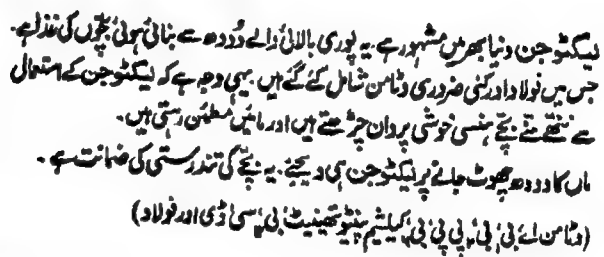 لیکٹوجن دنیا بھر میں مشہور ہے۔ یہ پوری بالائی والے دودھ سے بنائی ہوئی بچّوں کی غذا ہے۔
جس میں فولاد اور کئی ضروری وٹامن شامل کئے گئے ہیں۔ یہی وجہ ہے کہ لیکٹوجن کے استعمال
سے ننھے منّے بچّے ہنسی خوشی پروان چڑھتے ہیں اور مائیں مطمئن رہتی ہیں۔
ماں کا دودھ چھوٹ جانے پر لیکٹوجن ہی دیجئے۔ یہ بچّے کی تندرستی کی ضمانت ہے۔
(وٹامن اے، بی، بی، پی پی، بی، کیلشیم پنٹیوتھینیٹ، بی، سی، ڈی اور فولاد)